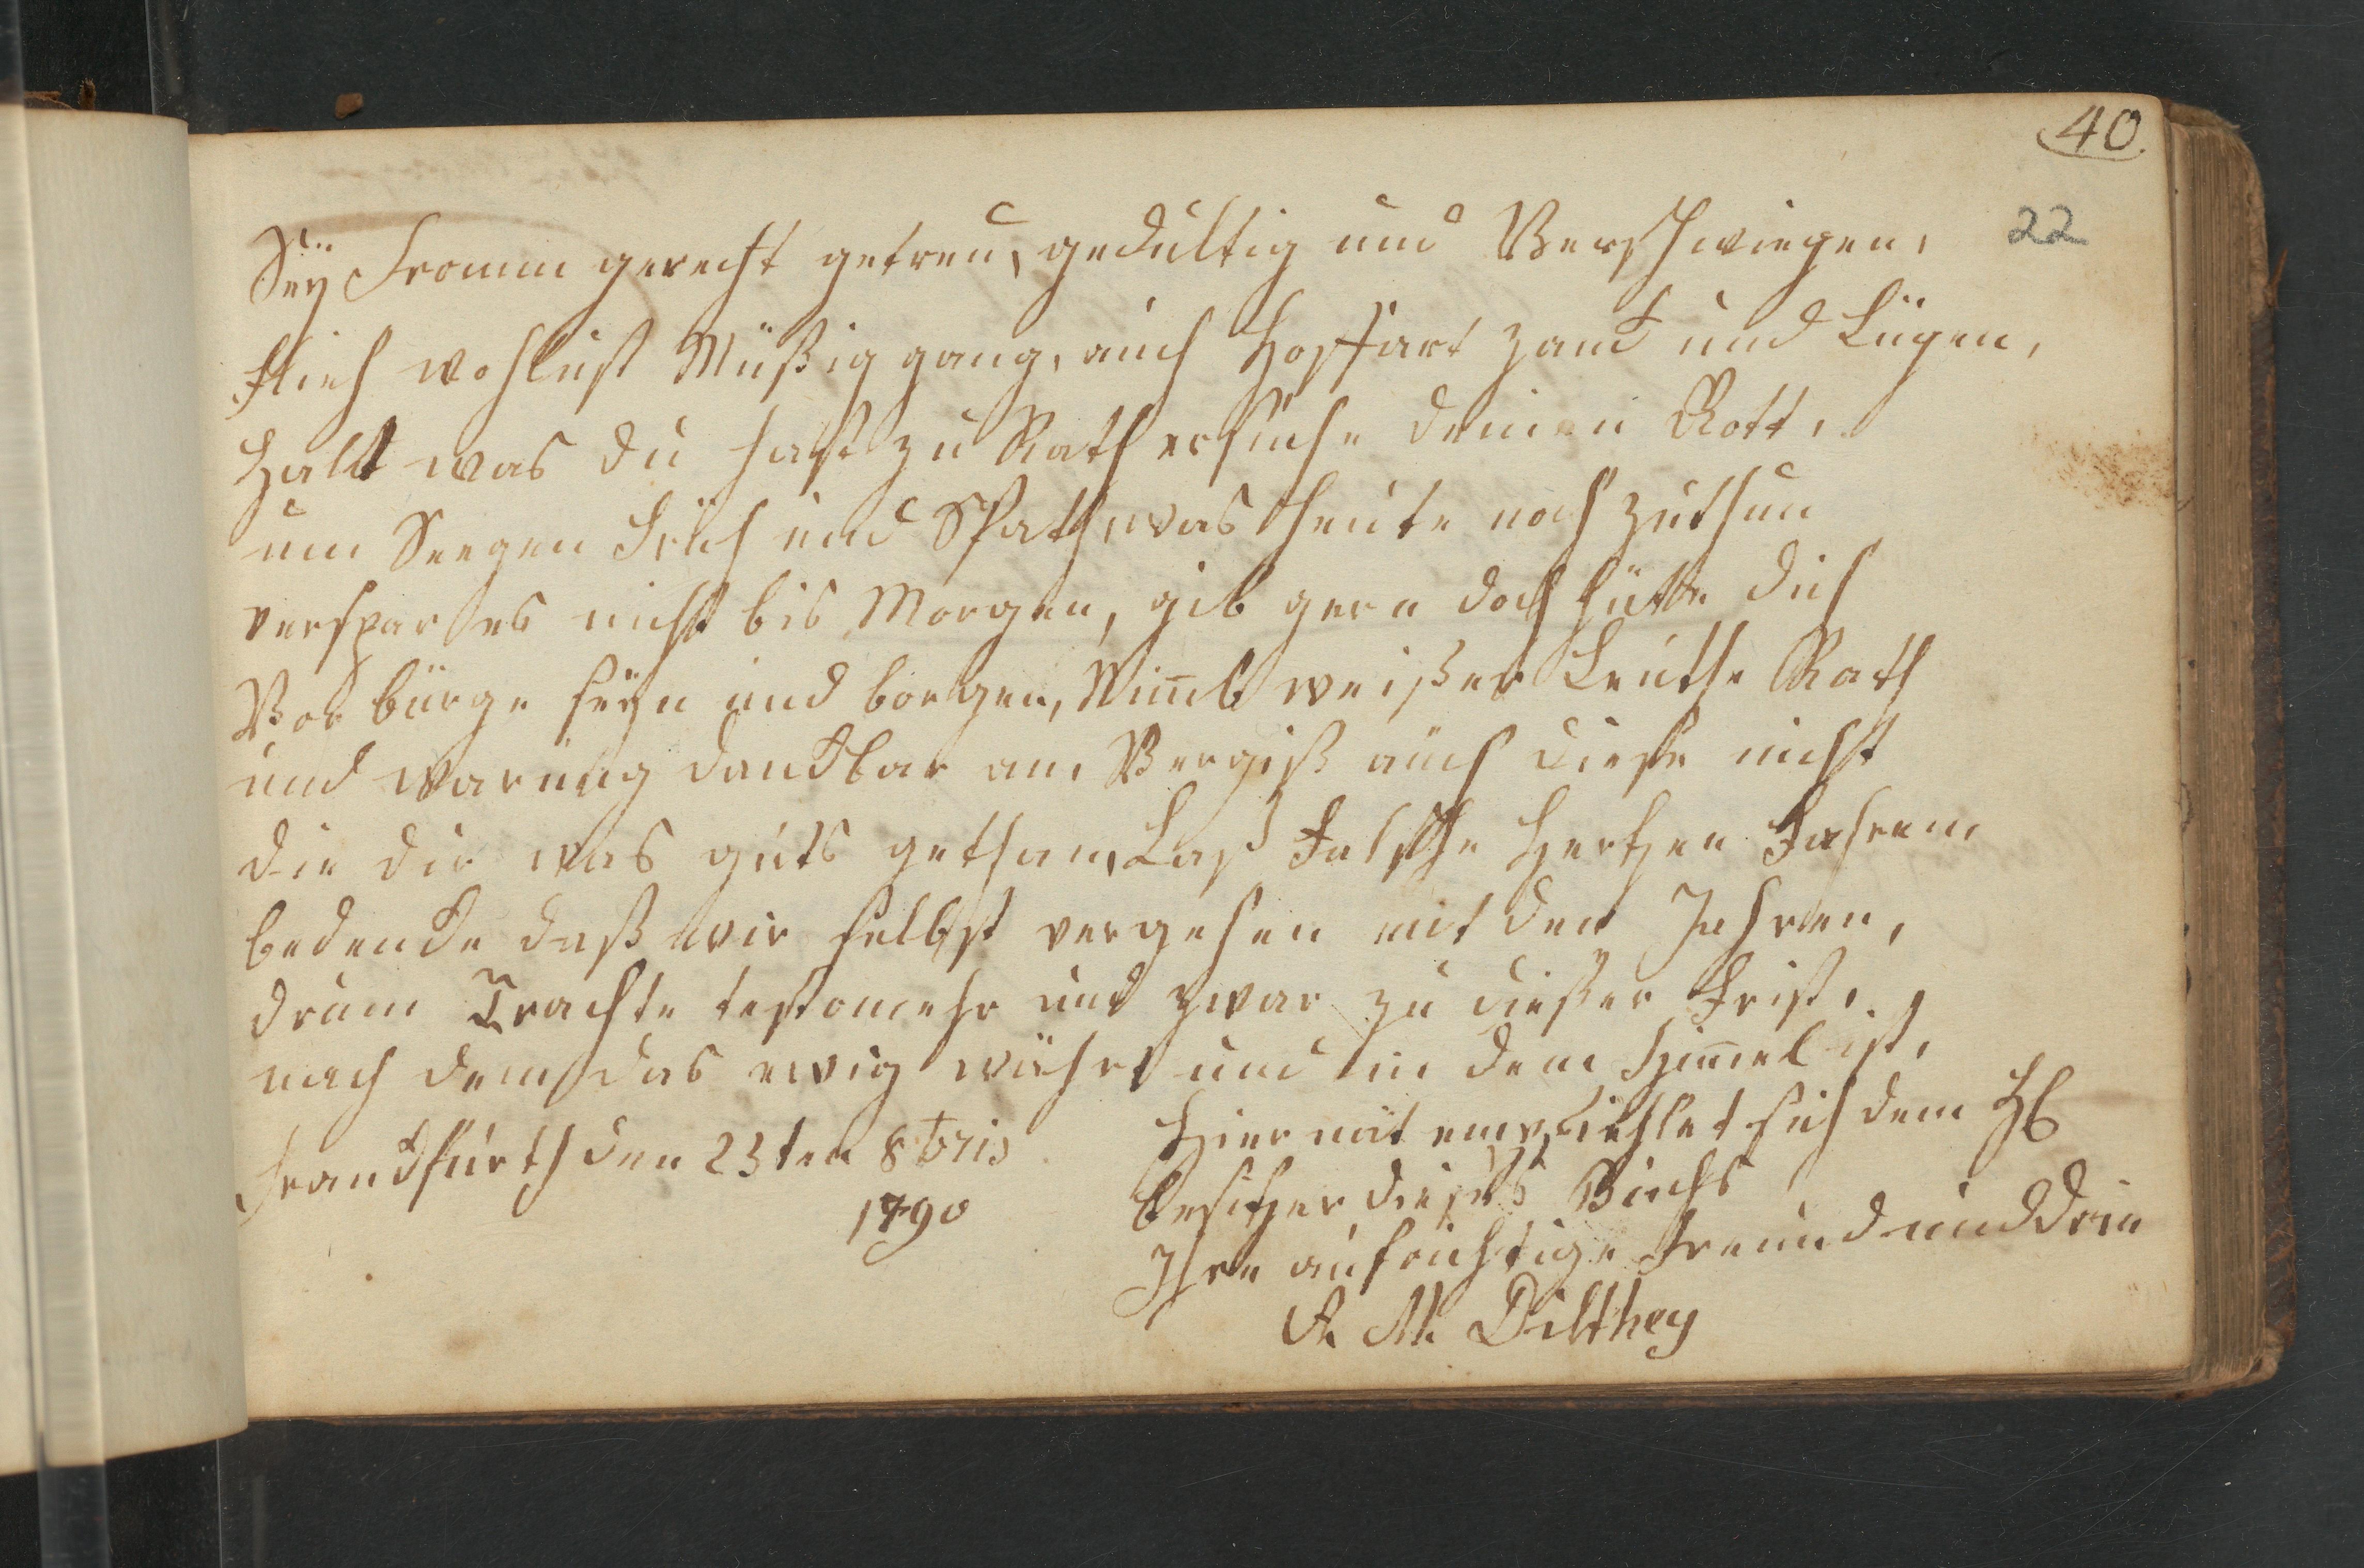 40.
22
Seÿ Fromm gerecht getreu, gedultig und Verschwiegen,
flieh wohlust Müßiggang, auch Hoffart zanck und Lügen,
Halt was du hast zu Rath ersuche deinen Gott,
um Seegen Früh und Spath, was heute noch zuthun
verspar es nicht bis Morgen, gib gern doch hütte dich
Vor bürge seÿn und borgen, Nim̅b weißer Leuthe Rath
und warnung danckbar an, Vergiß auch diese nicht
die dir was guts gethan, Laß Falsche Hertzen Fahren,
bedencke daß wir selbst vergehen mit den Jahren,
drum Trachte testomehr und zwar zu dießer Frist,
nach dem das ewig währt und in dem Him̅el ist,
Franckfurth den 23ten 8bris
1790
Hiermit empfiehlet sich dem H
besitzer dieses Buchs
Ihre aufrichtige Freundinddrin
A. M. Dilthey